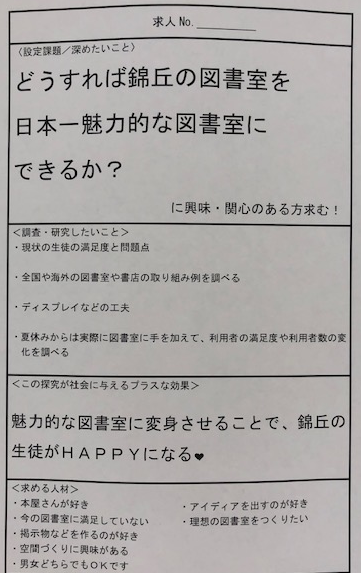 求人No.
〈設定課題/深めたいこと〉
どうすれば錦丘の図書室を
日本一魅力的な図書室に
できるか?
に興味・関心のある方求む!
<調査・研究したいこと>
・現状の生徒の満足度と問題点
・全国や海外の図書室や書店の取り組み例を調べる
・ディスプレイなどの工夫
・夏休みからは実際に図書室に手を加えて、利用者の満足度や利用者数の変
化を調べる
<この探究が社会に与えるプラスな効果>
魅力的な図書室に変身させることで、錦丘の
生徒がHAPPYになる♥
<求める人材>
・本屋さんが好き
・今の図書室に満足していない
・掲示物などを作るのが好き
・空間づくりに興味がある
・男女どちらでもOKです
・アイディアを出すのが好き
・理想の図書室をつくりたい